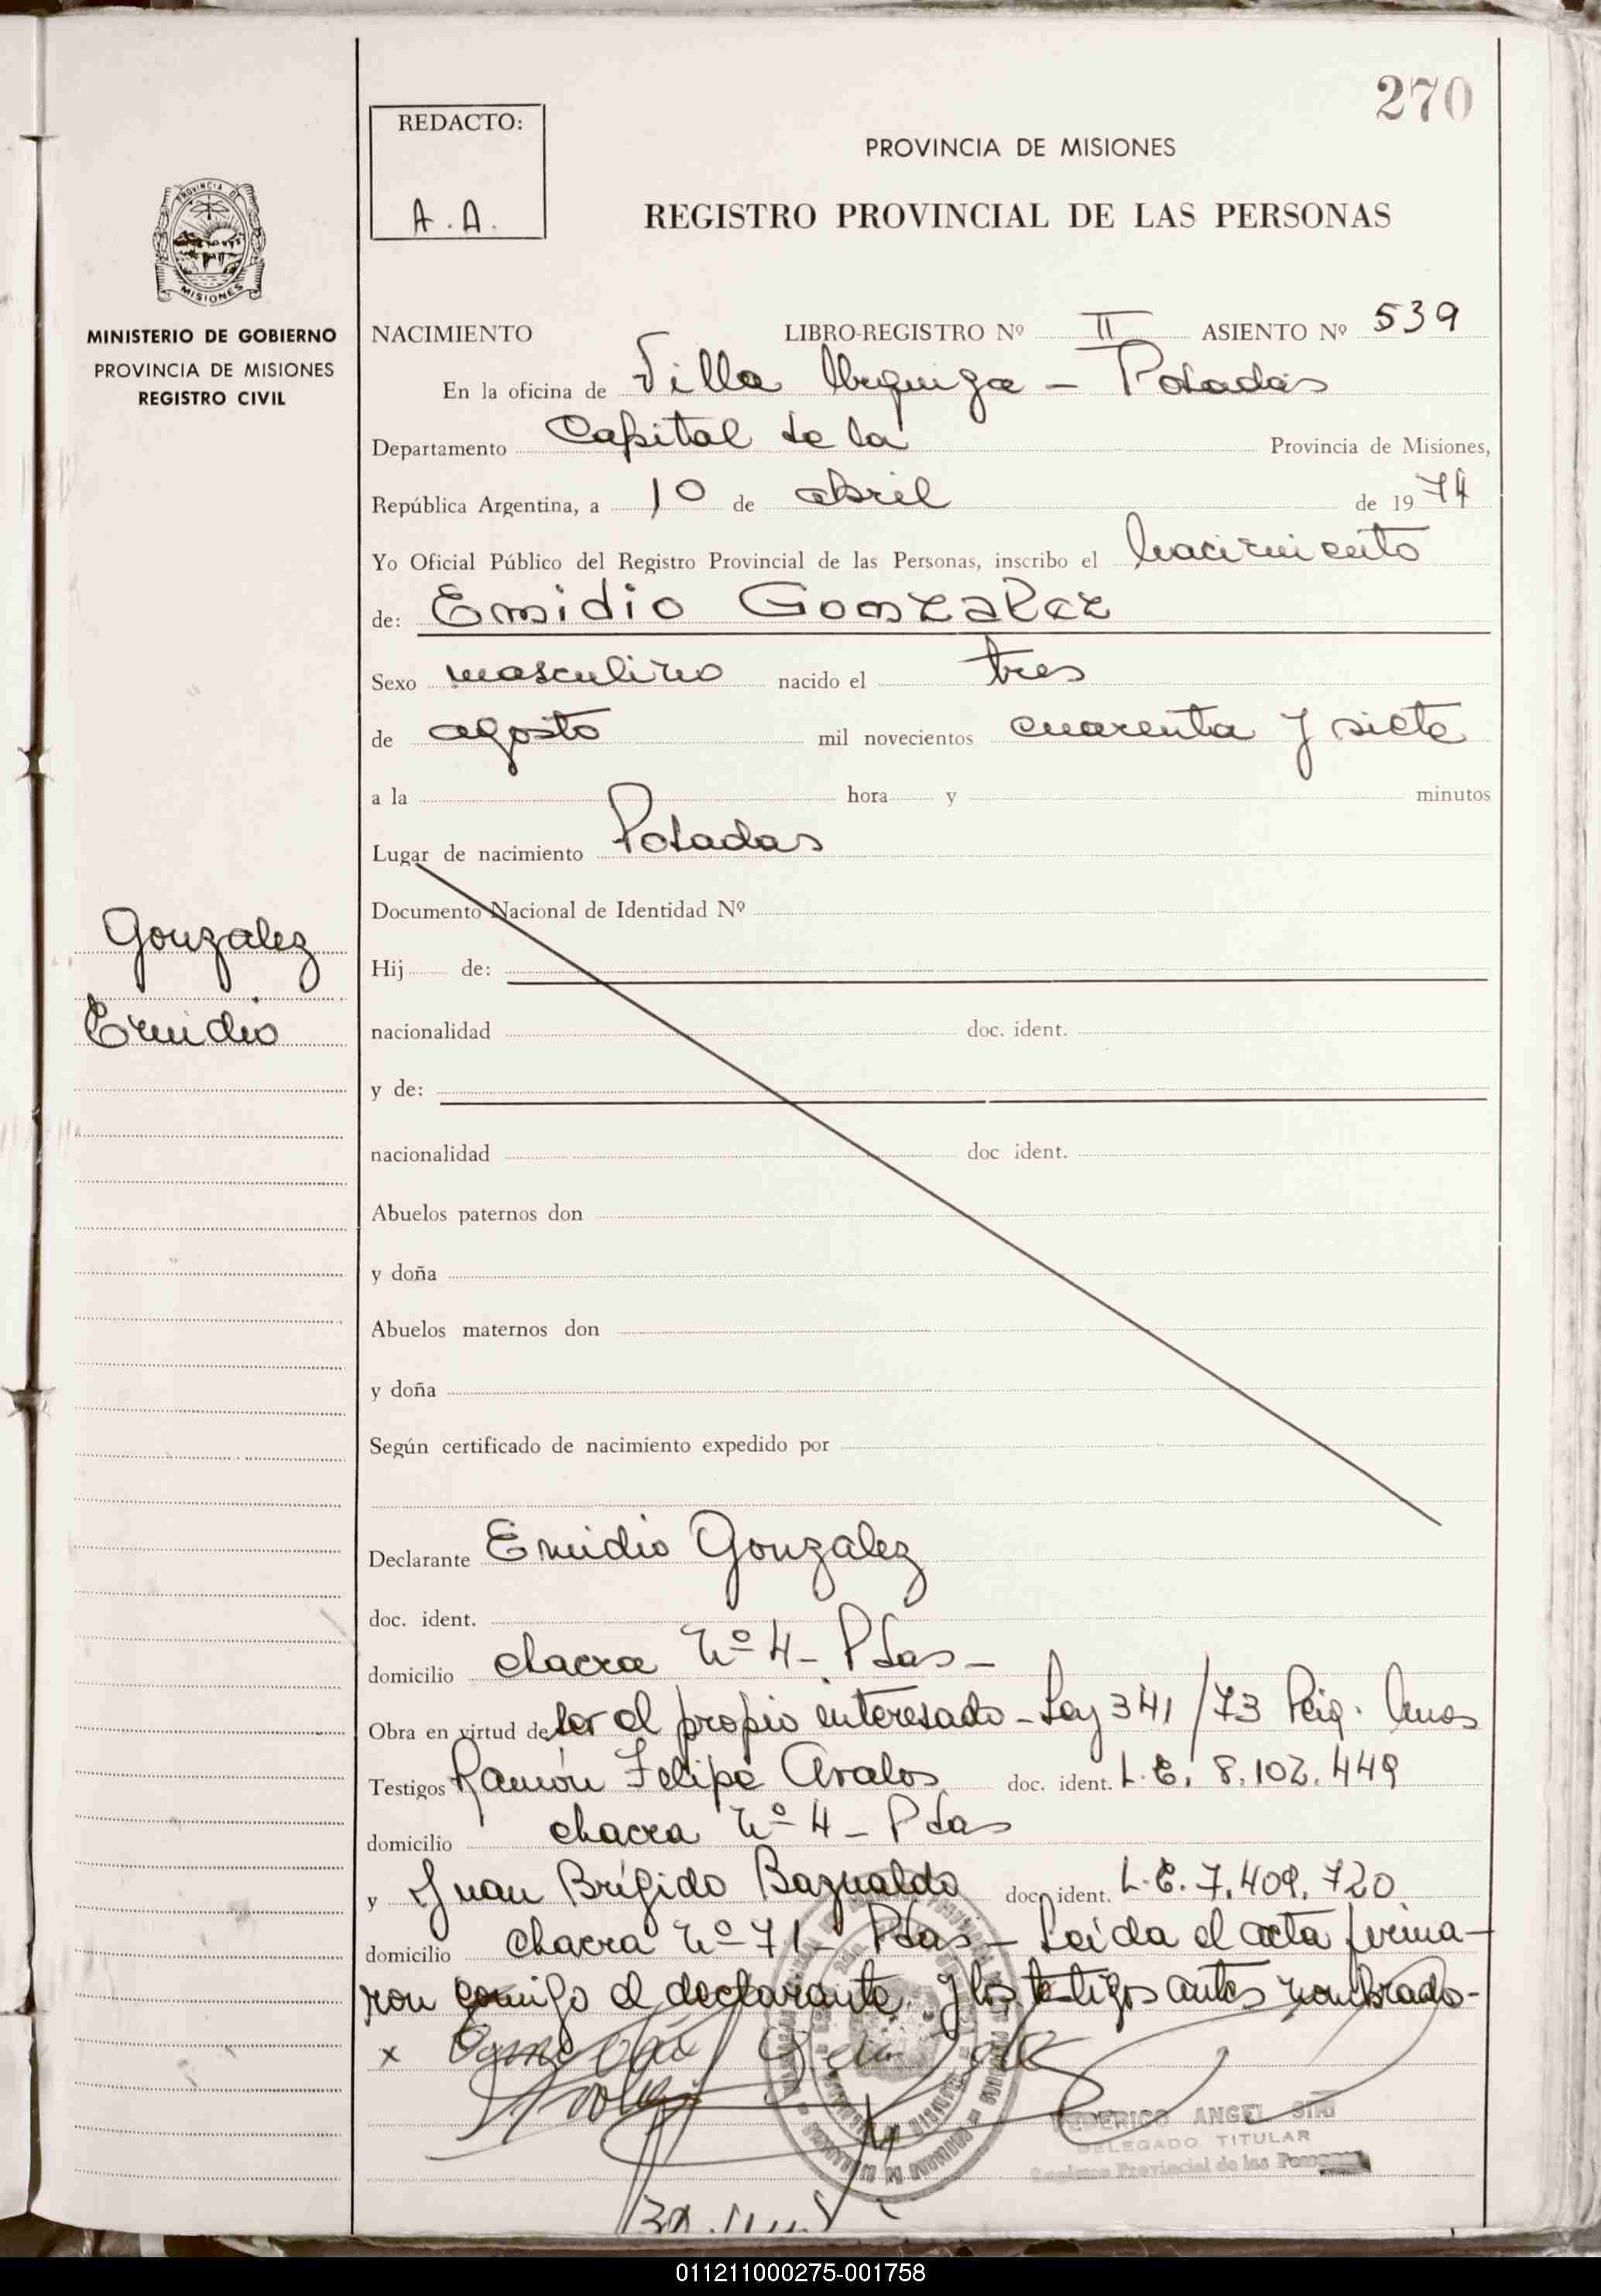 270
REDACTO:
A.A.
PROVINCIA DE MISIONES
REGISTRO PROVINCIAL DE LAS PERSONAS
MINISTERIO DE GOBIERNO
PROVINCIA DE MISIONES
REGISTRO CIVIL
NACIMIENTO LIBRO-REGISTRO Nº II ASIENTO Nº 539
En la oficina de Villa Urquiza - Posadas
Departamento Capital de la Provincia de Misiones,
República Argentina, a 10 de abril de 1974
Yo Oficial Público del Registro Provincial de las Personas, inscribo el nacimiento
de: Emidio Gonzalez
Sexo masculino nacido el tres
de agosto mil novecientos cuarenta y siete
a la hora y minutos
Lugar de nacimiento Posadas
Documento Nacional de Identidad Nº
Gonzalez
Emidio
Hij de:
nacionalidad doc. ident.
y de:
nacionalidad doc ident.
Abuelos paternos don
y doña
Abuelos maternos don
y doña
Según certificado de nacimiento expedido por
Declarante Emidio Gonzalez
doc. ident.
domicilio chacra nº 4 - Pdas -
Obra en virtud de ser el propio interesado - Ley 341/73
Testigos Ramón Felipe Avalos doc. ident. L.E. 8.102.449
domicilio chacra nº 4 - Pdas
y Juan Brígido Bazualdo doc ident. L.E. 7.409.720
domicilio chacra nº 71 - Pdas - Leída el acta firma-
ron conmigo el declarante y los testigos antes nombrados-
x
FEDERICO ANGEL
DELEGADO TITULAR
Registro Provincial de las Personas
011211000275-001758